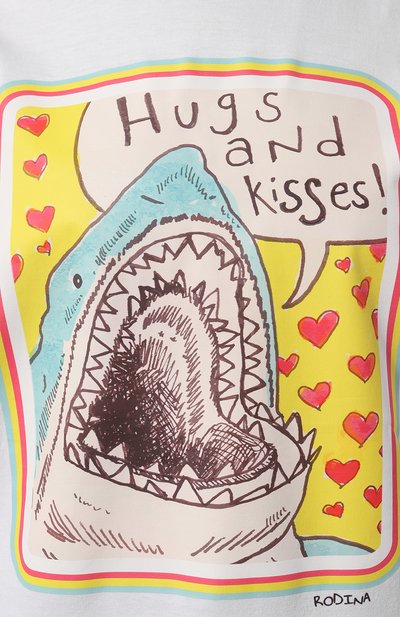 Hugs
and
kisses!
RODINA